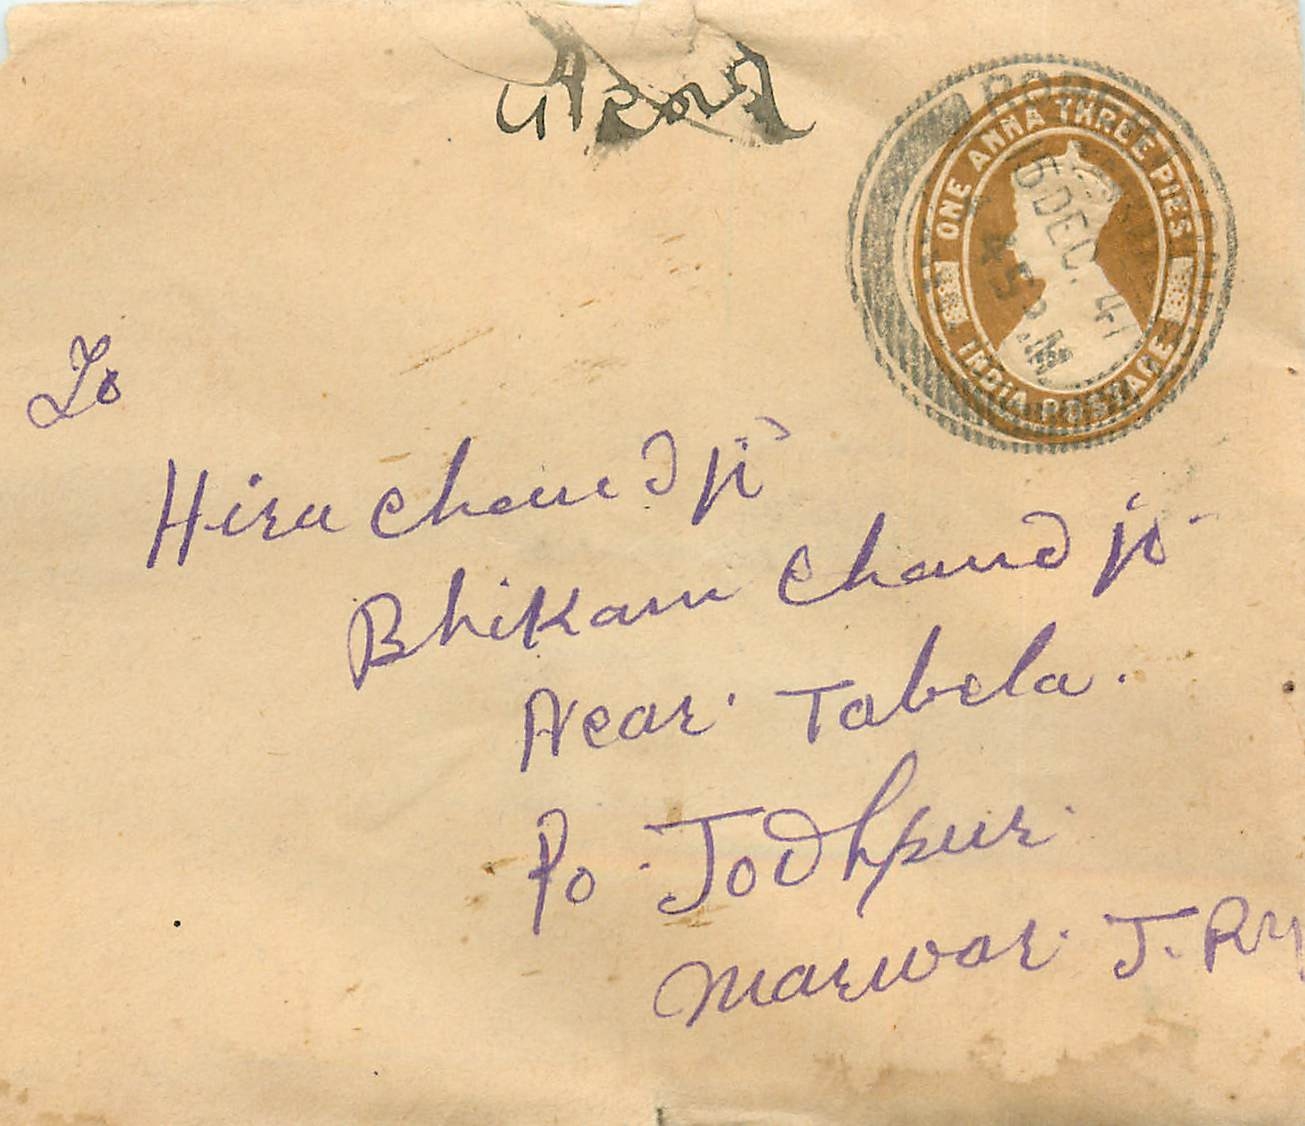 ONE ANNA THREE PIES
INDIA POSTAGE
5 DEC. 41
To
Hira Chand ji
Bhikam Chand ji
Near Tabela.
Po. Jodhpur
Marwar J. Ry